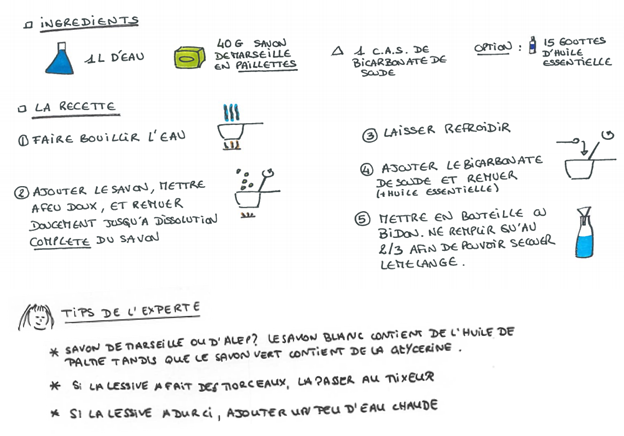 INGREDIENTS
1L D'EAU
40G SAVON
DE MARSEILLE
EN PAILLETTES
1 C.A.S. DE
BICARBONATE DE
SOUDE
OPTION :
15 GOUTTES
D'HUILE
ESSENTIELLE
LA RECETTE
① FAIRE BOUILLIR L'EAU
② AJOUTER LE SAVON, METTRE
A FEU DOUX, ET REMUER
DOUCEMENT JUSQU'A DISSOLUTION
COMPLETE DU SAVON
③ LAISSER REFROIDIR
④ AJOUTER LE BICARBONATE
DE SOUDE ET REMUER
(+HUILE ESSENTIELLE)
⑤ METTRE EN BOUTEILLE OU
BIDON. NE REMPLIR QU'AU
2/3 AFIN DE POUVOIR SECOUER
LE MELANGE.
TIPS DE L'EXPERTE
* SAVON DE MARSEILLE OU D'ALEP? LE SAVON BLANC CONTIENT DE L'HUILE DE
PALME TANDIS QUE LE SAVON VERT CONTIENT DE LA GLYCERINE.
* SI LA LESSIVE A FAIT DES MORCEAUX, LA PASSER AU MIXEUR
* SI LA LESSIVE A DURCI, AJOUTER UN PEU D'EAU CHAUDE